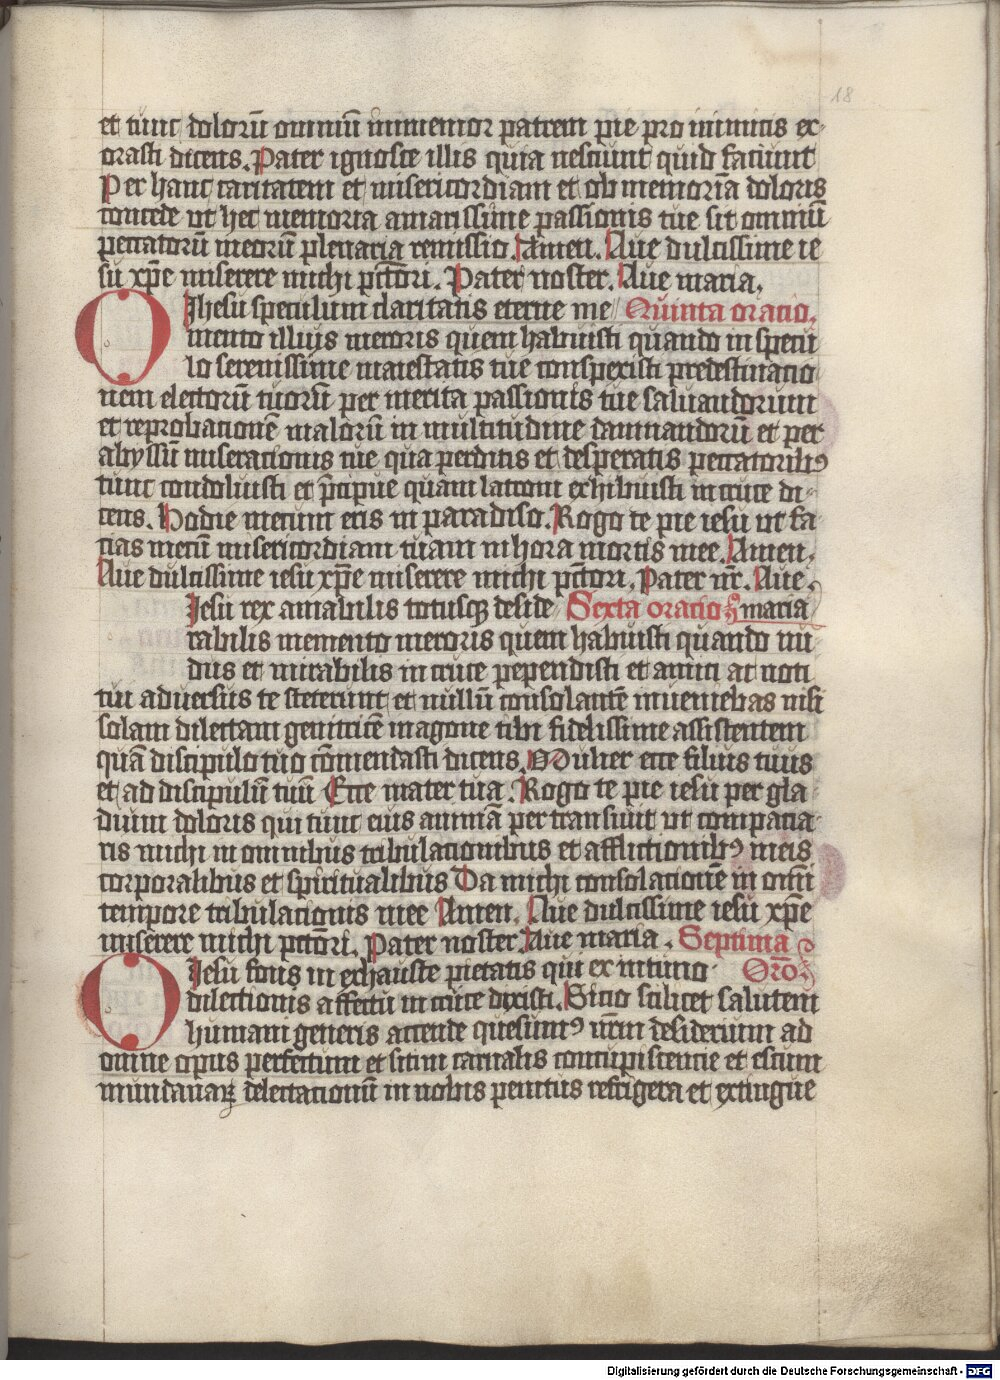 18
et tunc dolorū omniū immemor patrem pie pro inimicis ex-
orasti dicens. Pater ignosce illis quia nesciunt quid faciunt
Per hanc caritatem et misericordiam et ob memoriā doloris
concede ut hec memoria amarissime passionis tue sit omniū
peccatorū meorū plenaria remissio. Amen. Aue dulcissime ie
su xp̄e miserere michi pctōri. Pater noster. Aue maria.
O Ihesu speculum claritatis eterne me Quinta oracio.
mento illius meroris quem habuisti quando in specu
lo serenissime maiestatis tue conspexisti predestinacio
nem electorū tuorū per merita passionis tue saluandorum
et reprobacionē malorū in multitudine damnandorū et per
abyssū miseracionis tue qua perditis et desperatis peccatoribꝰ
tunc condoluisti et p̄cipue quam latroni exhibuisti in cruce di-
cens. Hodie mecum eris in paradiso. Rogo te pie iesu ut fa
cias mecū misericordiam tuam in hora mortis mee. Amen.
Aue dulcissime iesu xp̄e miserere michi pctōri. Pater nr̄. Aue
Iesu rex amabilis totusqꝫ deside Sexta oracio maria
rabilis memento meroris quem habuisti quando nu
dus et mirabilis in cruce pependisti et amici ac noti
tui aduersus te steterunt et nullū consolantē inueniebas nisi
solam dilectam genitricē in agone tibi fidelissime assistentem
quā discipulo tuo cōmendasti dicens. Mulier ecce filius tuus
et ad discipulū tuū Ecce mater tua. Rogo te pie iesu per gla
dium doloris qui tunc eius animā pertransiuit ut compacia
ris michi in omnibus tribulacionibus et afflictionibꝰ meis
corporalibus et spiritualibus Da michi consolacionē in omī
tempore tribulacionis mee Amen. Aue dulcissime iesu xp̄e
miserere michi pctōri. Pater noster. Aue maria. Septima
O Iesu fons in exhauste pietatis qui ex intimo Orō
dilectionis affectu in cruce dixisti. Sicio scilicet salutem
humani generis accende quesumꝰ nr̄m desiderium ad
omne opus perfectum et sitim carnalis concupiscencie et estum
mundanaꝝ delectacionū in nobis penitus refrigera et extingue
Digitalisierung gefördert durch die Deutsche Forschungsgemeinschaft - DFG